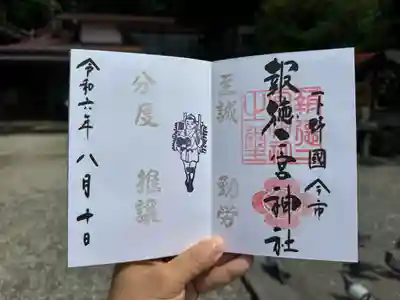 下野國 今市
報徳二宮神社
至誠 勤労
分度 推譲
令和六年 八月 十日